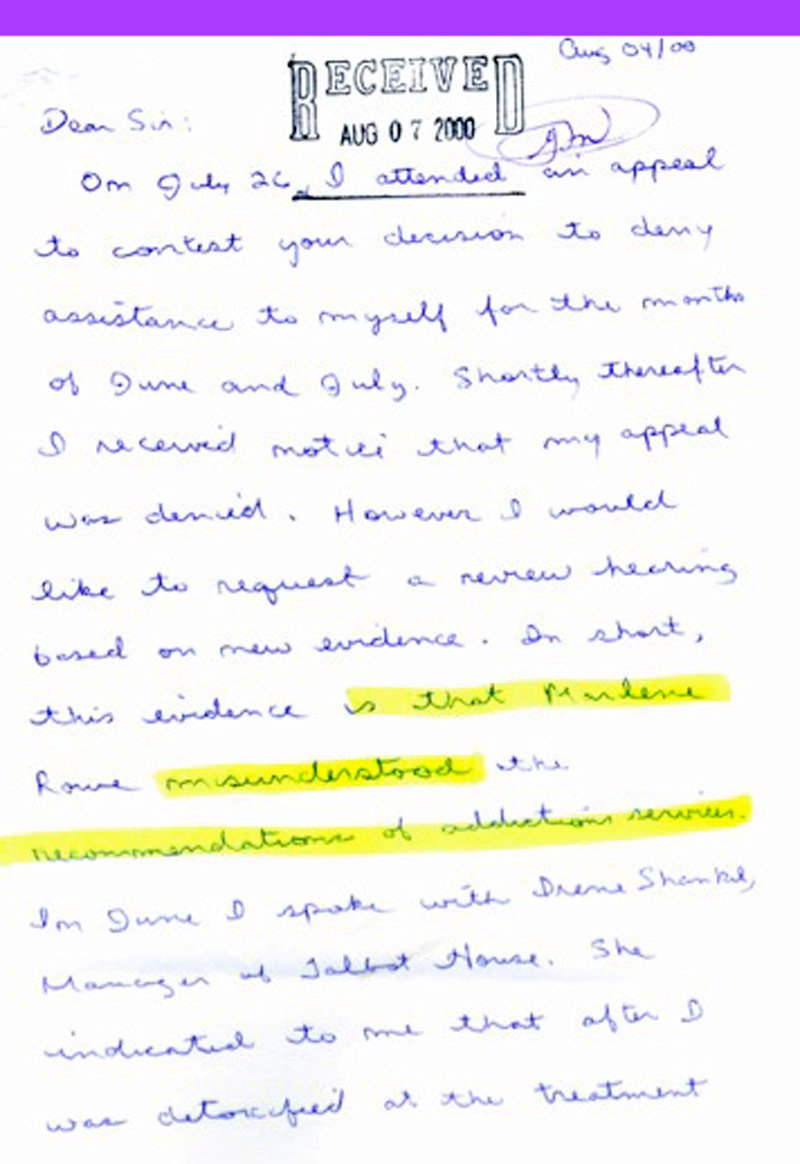 Aug 04/00
RECEIVED
AUG 07 2000
Dear Sir:
On July 26, I attended an appeal
to contest your decision to deny
assistance to myself for the months
of June and July. Shortly thereafter
I received notice that my appeal
was denied. However I would
like to request a review hearing
based on new evidence. In short,
this evidence is that Marlene
Rowe misunderstood the
recommendations of addictions services.
In June I spoke with Irene Shankel,
Manager of Talbot House. She
indicated to me that after I
was detoxified at the treatment